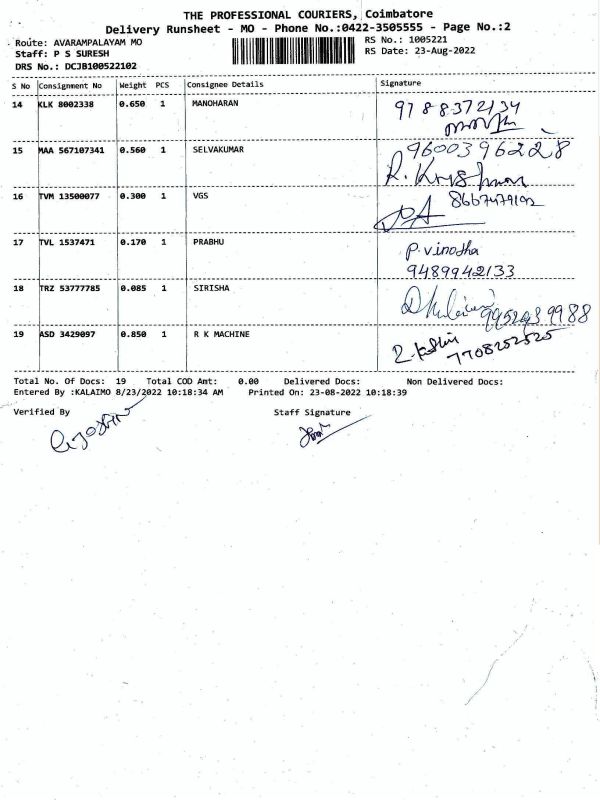 THE PROFESSIONAL COURIERS, Coimbatore
Delivery Runsheet - MO - Phone No.:0422-3505555 - Page No.:2
Route: AVARAMPALAYAM MO
RS No.: 1005221
Staff: P S SURESH
RS Date: 23-Aug-2022
DRS No.: DCJB100522102
S No Consignment No Weight PCS Consignee Details Signature
14 KLK 8002338 0.650 1 MANOHARAN 9788372134
15 MAA 567107341 0.560 1 SELVAKUMAR 9600396228
R. Krishnan
16 TVM 13500077 0.300 1 VGS 8667479192
17 TVL 1537471 0.170 1 PRABHU P. vinodha
9489942133
18 TRZ 53777785 0.085 1 SIRISHA
19 ASD 3429097 0.850 1 R K MACHINE
7708252525
Total No. Of Docs: 19 Total COD Amt: 0.00 Delivered Docs: Non Delivered Docs:
Entered By :KALAIMO 8/23/2022 10:18:34 AM Printed On: 23-08-2022 10:18:39
Verified By Staff Signature